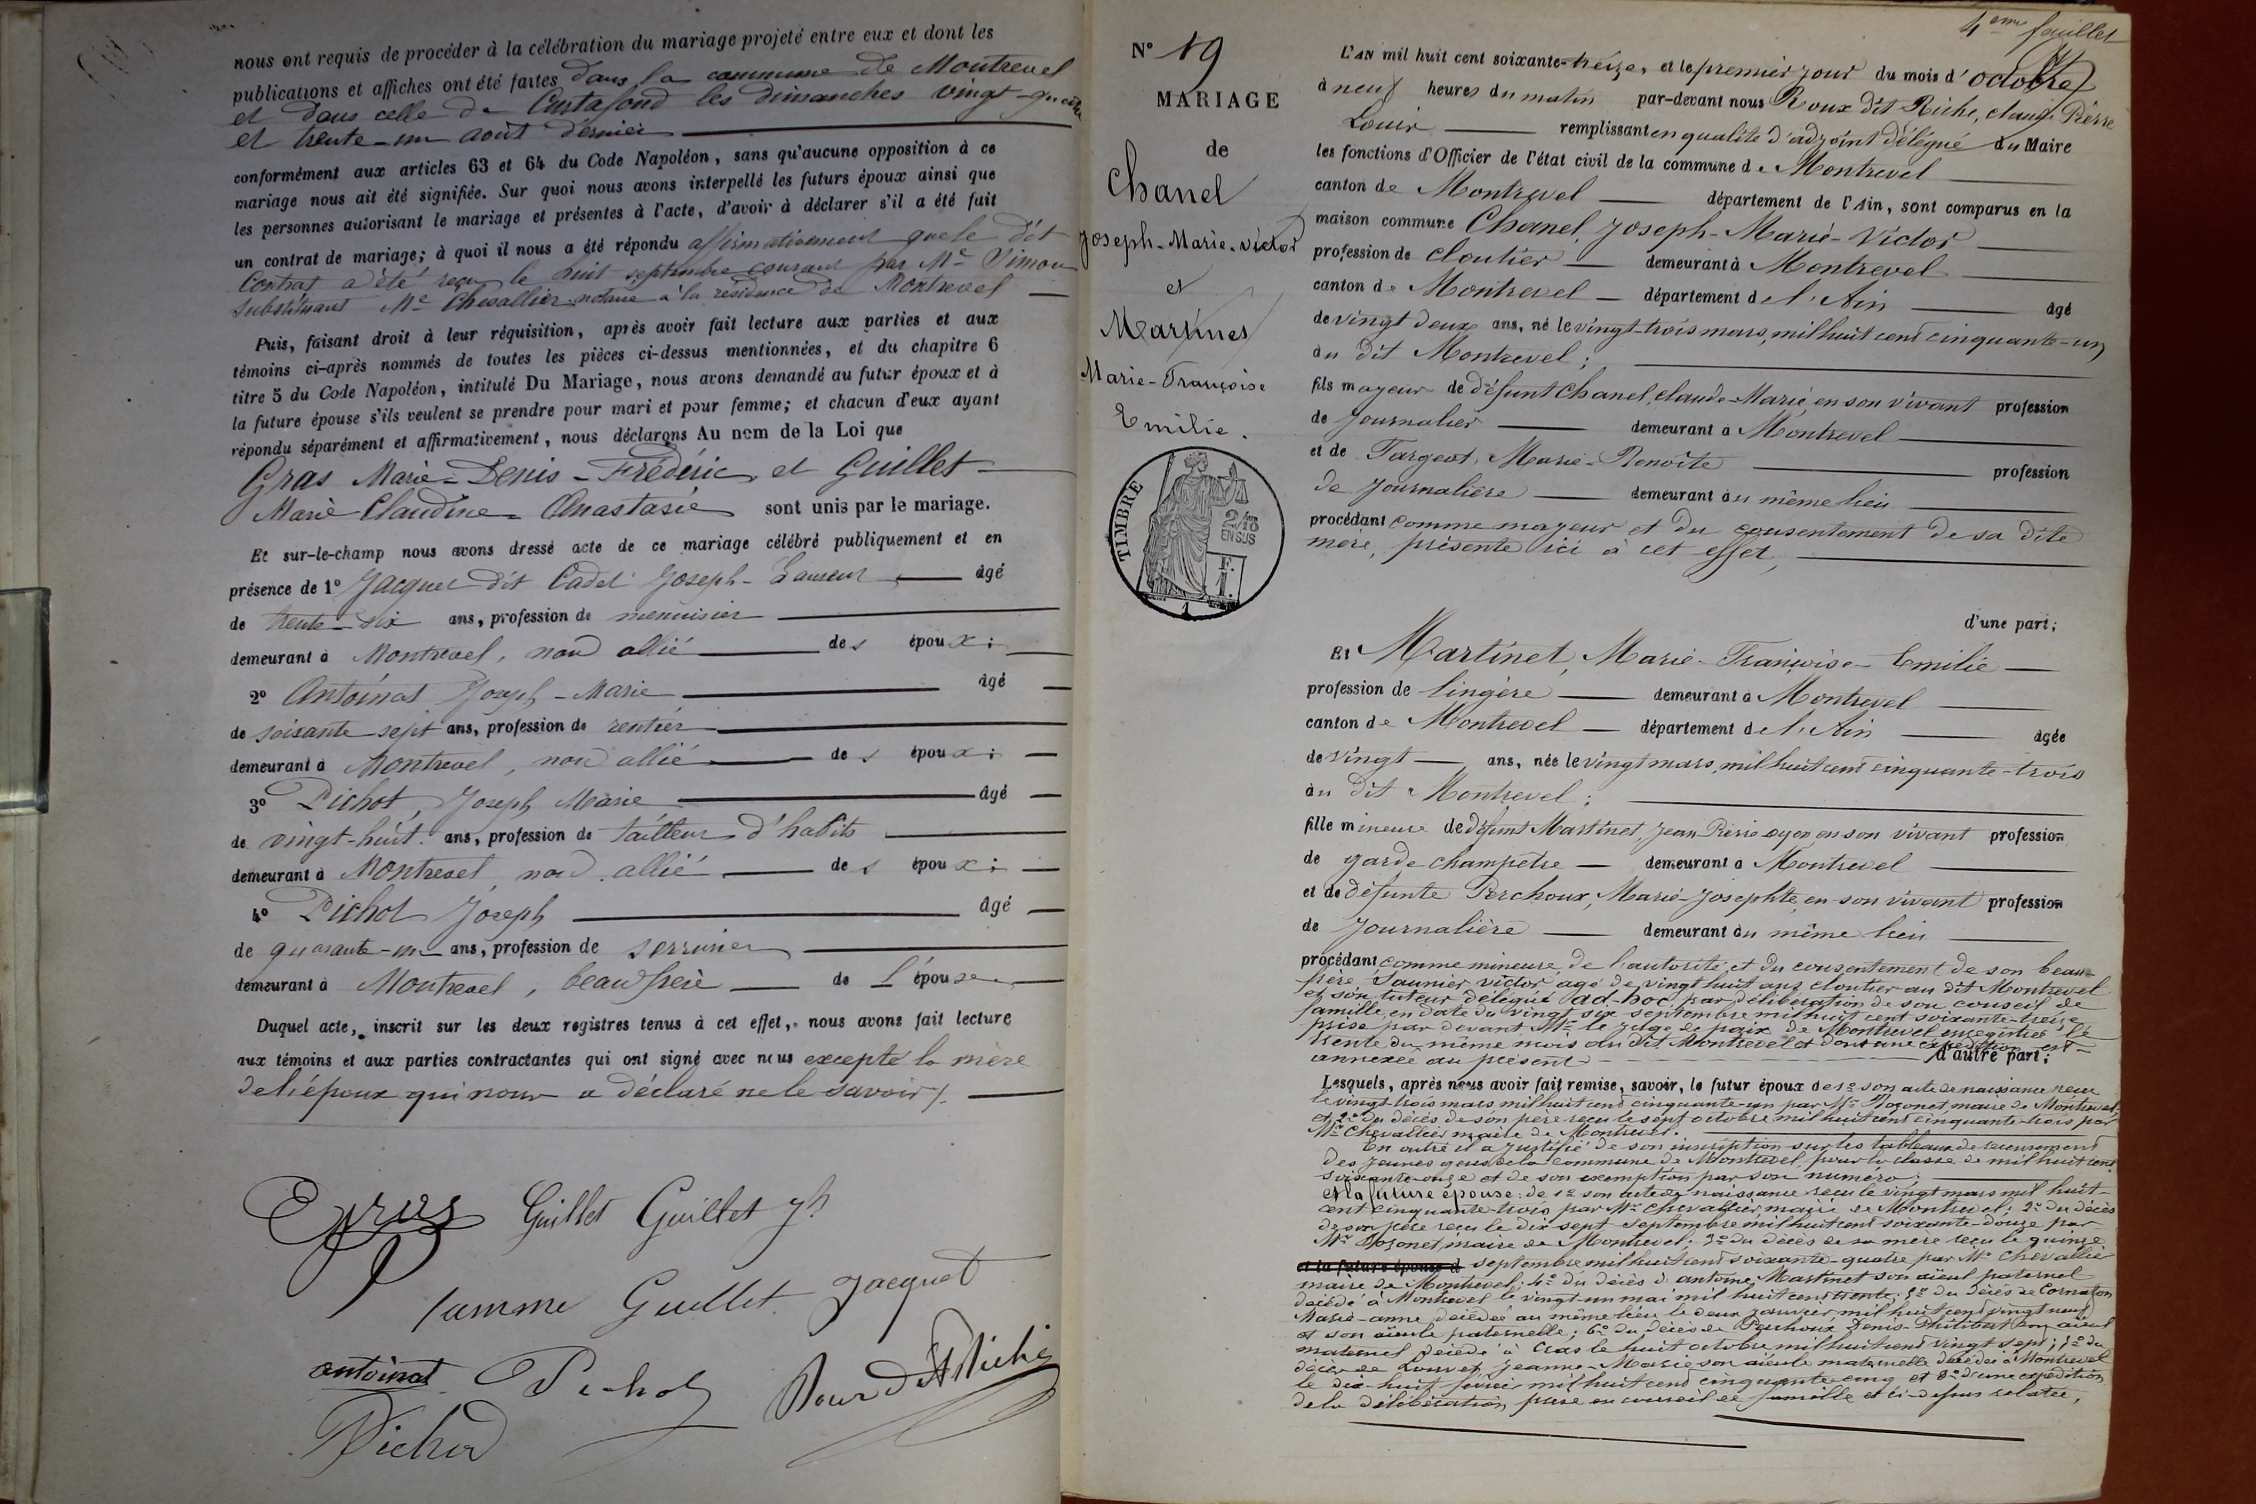 nous ont requis de procéder à la célébration du mariage projeté entre eux et dont les
publications et affiches ont été faites dans la commune de Montrevel
et dans celle de Curtafond les dimanches vingt-quatre
et trente-un août dernier
conformément aux articles 63 et 64 du Code Napoléon, sans qu'aucune opposition à ce
mariage nous ait été signifiée. Sur quoi nous avons interpellé les futurs époux ainsi que
les personnes autorisant le mariage et présentes à l'acte, d'avoir à déclarer s'il a été fait
un contrat de mariage; à quoi il nous a été répondu affirmativement que le dit
Contrat a été reçu le huit septembre courant par Me Simon
substituant Me Chevallier notaire à la résidence de Montrevel
Puis, faisant droit à leur réquisition, après avoir fait lecture aux parties et aux
témoins ci-après nommés de toutes les pièces ci-dessus mentionnées, et du chapitre 6
titre 5 du Code Napoléon, intitulé Du Mariage, nous avons demandé au futur époux et à
la future épouse s'ils veulent se prendre pour mari et pour femme; et chacun d'eux ayant
répondu séparément et affirmativement, nous déclarons Au nom de la Loi que
Gras Marie-Denis-Frédéric et Guillet
Marie Claudine-Anastasie sont unis par le mariage.
Et sur-le-champ nous avons dressé acte de ce mariage célébré publiquement et en
présence de 1º Jacquet dit Cadet Joseph-Laurent âgé
de trente-six ans, profession de menuisier
demeurant à Montrevel, non allié des époux;
2º Antoinat Joseph-Marie âgé
de soixante sept ans, profession de rentier
demeurant à Montrevel, non allié des époux;
3º Pichot, Joseph Marie âgé
de vingt-huit ans, profession de tailleur d'habits
demeurant à Montrevel, non allié des époux;
4º Pichot Joseph âgé
de quarante-un ans, profession de serrurier
demeurant à Montrevel, beau frère de l'épouse
Duquel acte, inscrit sur les deux registres tenus à cet effet, nous avons fait lecture
aux témoins et aux parties contractantes qui ont signé avec nous excepté la mère
de l'époux qui nous a déclaré ne le savoir.
Gras Guillet Guillet Jh
femme Guillet Jacquet
antoinat Pichot Roux dit Riche
Pichot
4eme feuillet
Nº 19
MARIAGE
de
Chanel
Joseph-Marie-Victor
et
Martinet
Marie-Françoise
Emilie.
TIMBRE
2/10 EN SUS
F. 1.
L'AN mil huit cent soixante-treize, et le premier jour du mois d'octobre
à neuf heures du matin par-devant nous Roux dit Riche, claude Pierre
Louis remplissant en qualité d'adjoint délégué du Maire
les fonctions d'Officier de l'état civil de la commune de Montrevel
canton de Montrevel département de l'Ain, sont comparus en la
maison commune Chanel, Joseph-Marie-Victor
profession de cloutier demeurant à Montrevel
canton de Montrevel département de l'Ain âgé
de vingt deux ans, né le vingt-trois mars, mil huit cent cinquante-un
au dit Montrevel;
fils mayeur de défunt Chanel, claude-Marie, en son vivant profession
de journalier demeurant à Montrevel
et de Targeot, Marie-Benoîte profession
de journalière demeurant au même lieu
procédant comme mayeur et du consentement de sa dite
mère, présente ici à cet effet,
d'une part;
Et Martinet, Marie-Françoise-Emilie
profession de lingère demeurant à Montrevel
canton de Montrevel département de l'Ain âgée
de vingt ans, née le vingt mars, mil huit cent cinquante-trois
au dit Montrevel;
fille mineure de défunt Martinet, Jean Pierre ayen en son vivant profession
de garde champêtre demeurant à Montrevel
et de défunte Perchoux, Marie-Josephte, en son vivant profession
de journalière demeurant au même lieu
procédant comme mineure, de l'autorité et du consentement de son beau-
frère Saunier victor, âgé de vingt huit ans cloutier au dit Montrevel
et son tuteur délégué ad-hoc par délibération de son conseil de
famille, en date du vingt six septembre mil huit cent soixante-treize
prise par devant Mr le juge de paix de Montrevel enregistrée le
trente du même mois au dit Montrevel et dont une expédition est
annexée au présent d'autre part;
Lesquels, après nous avoir fait remise, savoir, le futur époux de 1º son acte de naissance reçu
le vingt-trois mars mil huit cent cinquante-un par Mr maire de Montrevel,
et 2º du décès de son père reçu le sept octobre mil huit cent cinquante-trois par
Mr Chevallier maire de Montrevel.
En outre il a justifié de son inscription sur les tableaux de recensement
des jeunes gens de la commune de Montrevel, pour la classe de mil huit cent
soixante-onze et de son exemption par son numéro;
et la future épouse: de 1º son acte de naissance reçu le vingt mars mil huit-
cent cinquante-trois par Mr Chevallier maire de Montrevel: 2º du décès
de son père reçu le dix sept septembre mil huit cent soixante-douze par
Mr maire de Montrevel: 3º du décès de sa mère reçu le quinze
et la future épouse d septembre mil huit cent soixante-quatre par Mr Chevallier
maire de Montrevel: 4º du décès d'antoine Martinet son aïeul paternel
décédé à Montrevel le vingt-un mai mil huit cent trente; 5º du décès de Cornaton
Marie-anne, décédée au même lieu le deux janvier mil huit cent vingt neuf
et son aïeule paternelle; 6º du décès de Perchoux Denis-Philibert son aïeul
maternel décédé à Cras le huit octobre mil huit cent vingt sept; 7º du
décès de Louvet, Jeanne-Marie son aïeule maternelle décédée à Montrevel
le dix-huit février mil huit cent cinquante cinq et 8º d'une expédition
de la délibération prise en conseil de famille et ci-dessus relatée,